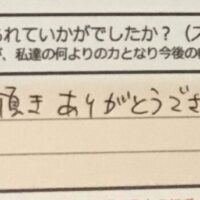 れていかがでしたか？（ス
が、私達の何よりの力となり今後の
頂き ありがとうござ